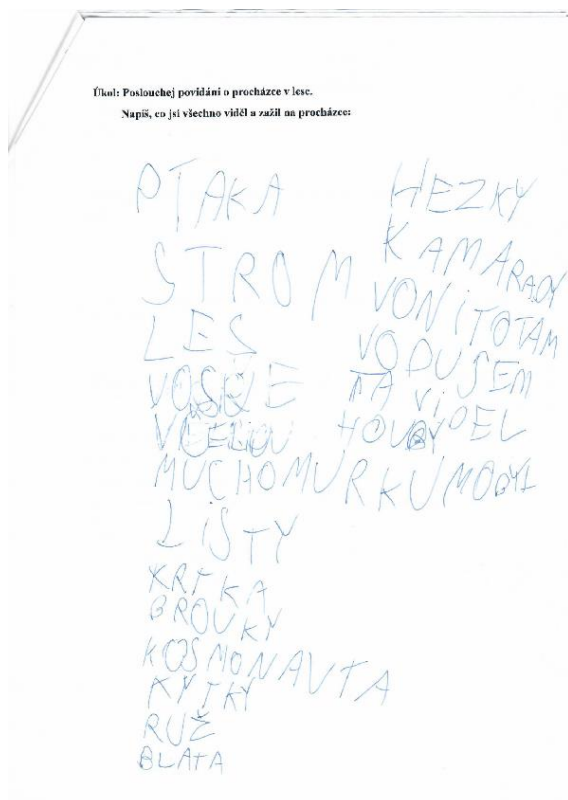 Úkol: Poslouchej povídání o procházce v lese.
Napiš, co jsi všechno viděl a zažil na procházce:
PTAKA
STROM
LES
VOSELE
MUCHOMURKU MOBYL
LISTY
KRTKA
BROUKY
KOSMONAVTA
KYTKY
RUŽ
BLATA
HEZKY
KAMARADY
VONITOTAM
VODUJSEM
TA Vi
HOUBY DEL